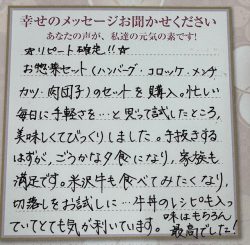 幸せのメッセージお聞かせください
あなたの声が、私達の元気の素です!
☆リピート確定!!☆
お惣菜セット(ハンバーグ・コロッケ・メンチ
カツ・肉団子)のセットを購入。忙しい
毎日に手軽さを…と思って試したところ、
美味しくてびっくりしました。手抜きする
はずが、ごうかな夕食になり、家族も
満足です。米沢牛も食べてみたくなり、
切落しをお試しに…牛丼のレシピも入っ
ていてとても気が利いています。味はもちろん
最高でした!